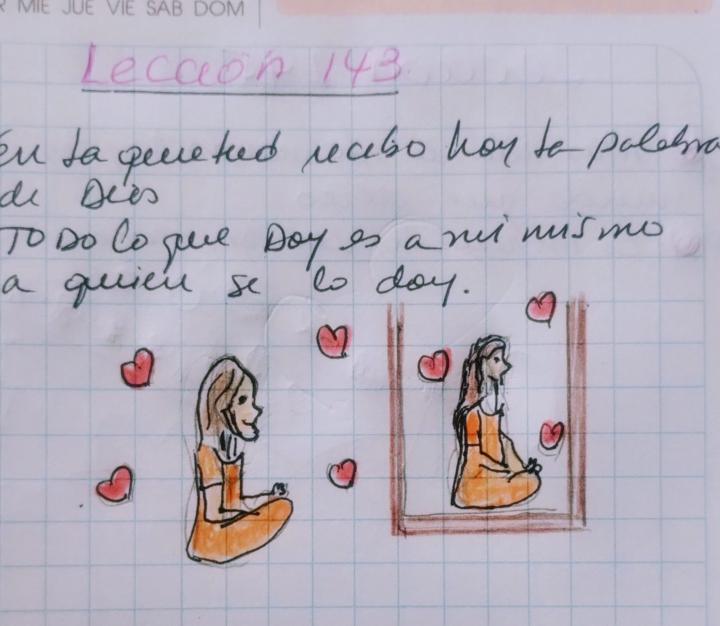 R MIE JUE VIE SAB DOM
Lección 143
en la quietud recibo hoy la palabra
de Dios
TODO lo que Doy es a mi mismo
a quien se lo doy.